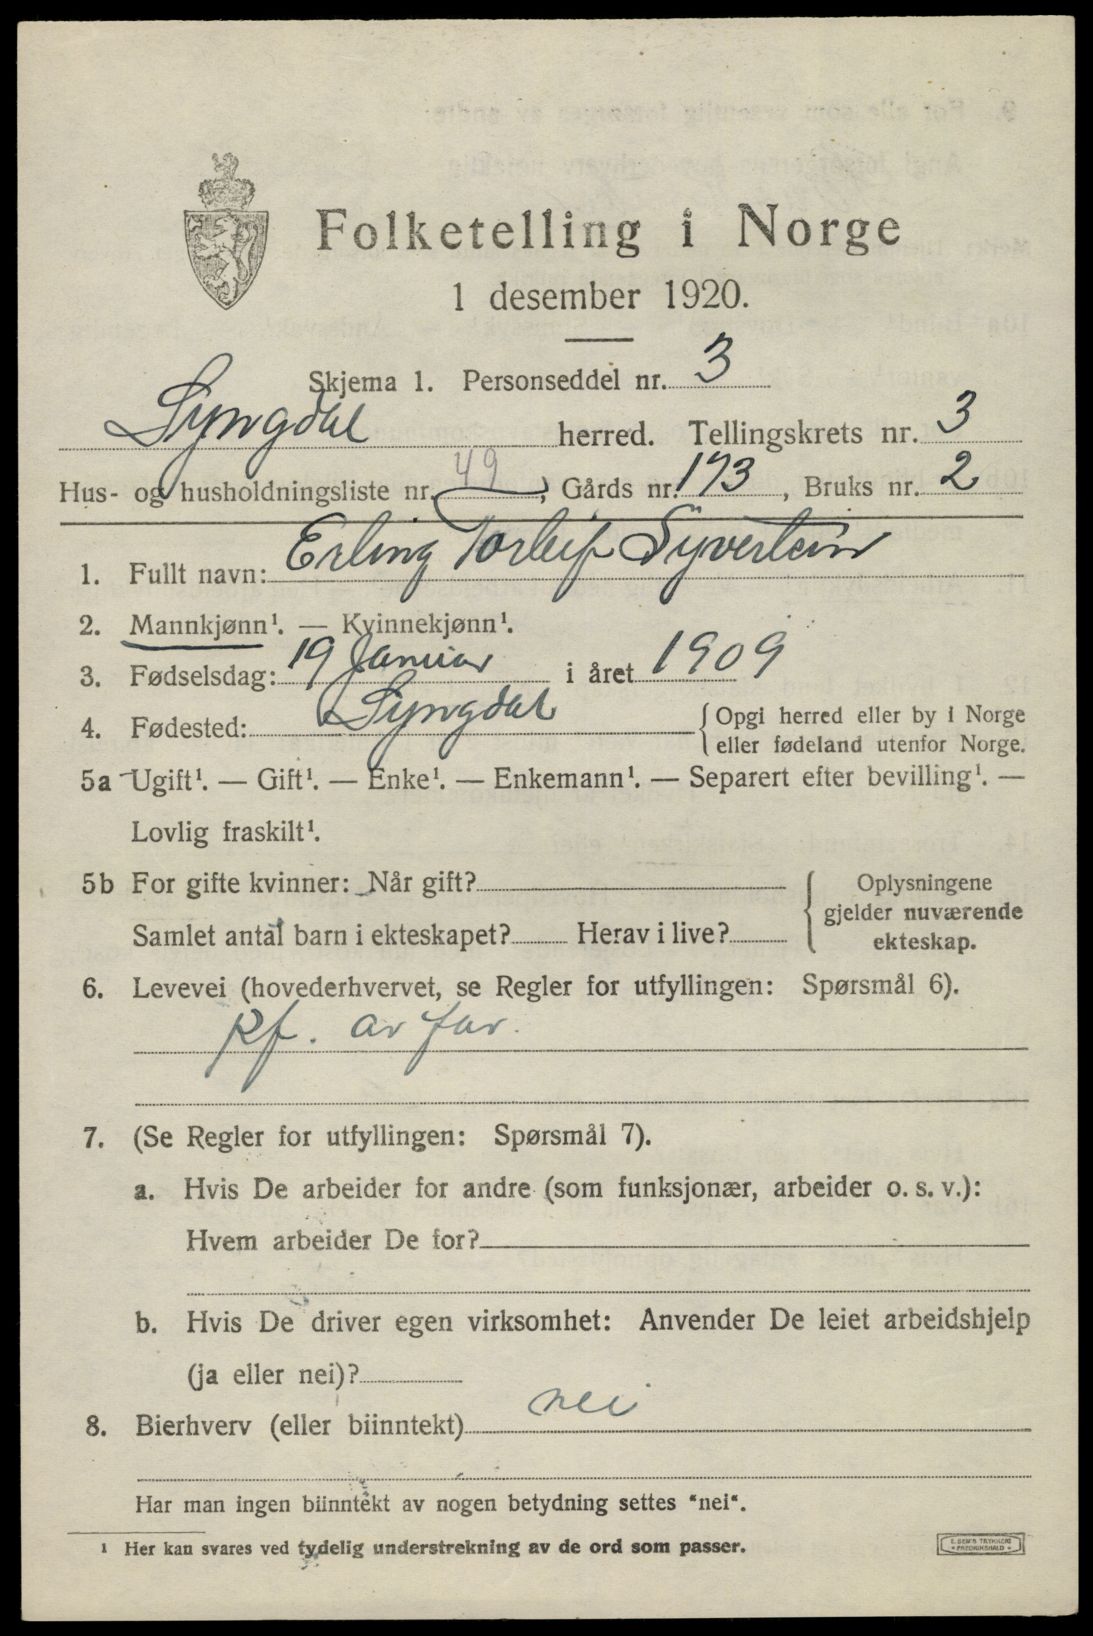 Folketelling i Norge
1 desember 1920.
Skjema 1. Personseddel nr. 3
Lyngdal herred. Tellingskrets nr. 3
Hus- og husholdningsliste nr. 49, Gårds nr. 173, Bruks nr. 2
1. Fullt navn: Erling Torleif Syvertsen
2. Mannkjønn¹. — Kvinnekjønn¹.
3. Fødselsdag: 19 Januar i året 1909
4. Fødested: Lyngdal {Opgi herred eller by i Norge
eller fødeland utenfor Norge.
5a Ugift¹. — Gift¹. — Enke¹. — Enkemann¹. — Separert efter bevilling¹. —
Lovlig fraskilt¹.
5b For gifte kvinner: Når gift? { Oplysningene
gjelder nuværende
ekteskap.
Samlet antal barn i ekteskapet? Herav i live?
6. Levevei (hovederhvervet, se Regler for utfyllingen: Spørsmål 6).
Kf. av far.
7. (Se Regler for utfyllingen: Spørsmål 7).
a. Hvis De arbeider for andre (som funksjonær, arbeider o. s. v.):
Hvem arbeider De for?
b. Hvis De driver egen virksomhet: Anvender De leiet arbeidshjelp
(ja eller nei)?
8. Bierhverv (eller biinntekt) nei
Har man ingen biinntekt av nogen betydning settes "nei".
¹ Her kan svares ved tydelig understrekning av de ord som passer.
E. SEM'S TRYKKERI
FREDRIKSHALD